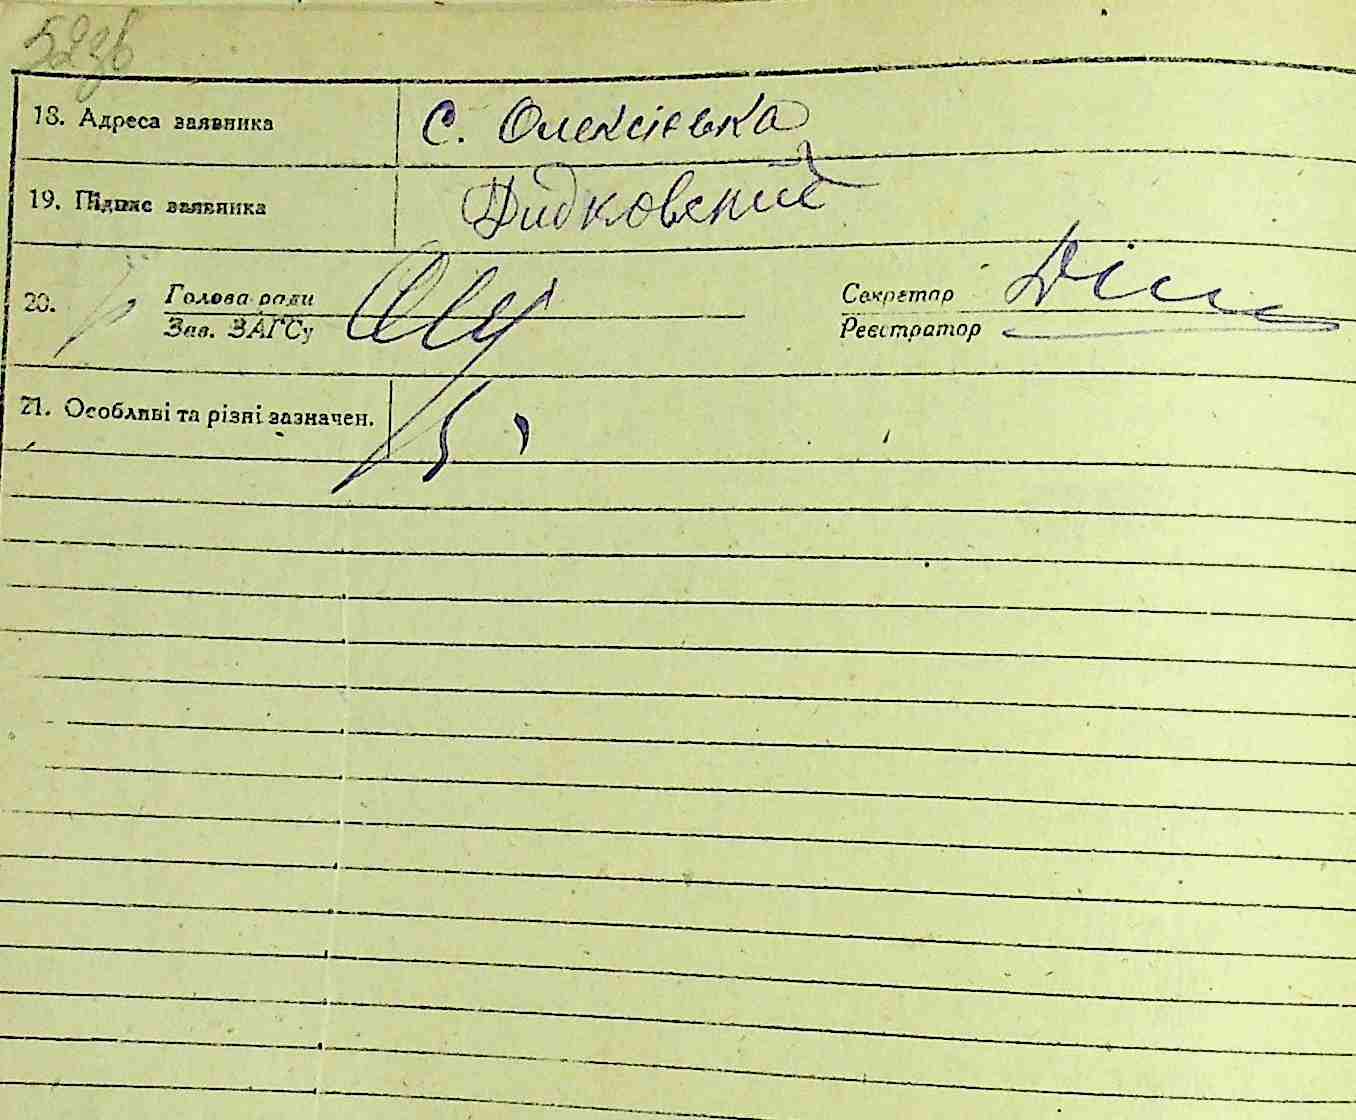 52зв
18. Адреса заявника с. Олексієвка
19. Підпис заявника Дидковский
20. Голова ради Секретар
Зав. ЗАГСу Реєстратор
21. Особливі та різні зазначен.